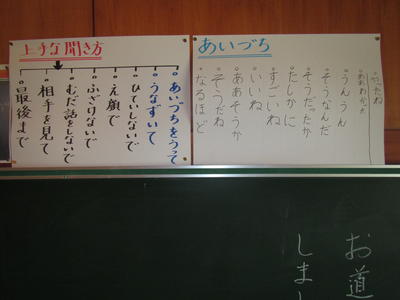 上手な聞き方
あいづちをうって
うなずいて
ひていしないで
え顔で
ふざけないで
むだ話をしないで
相手を見て
最後まで
あいづち
うんうん
そうなんだ
そうだったか
たしかに
すごいね
いいね
ああそうか
そうだね
なるほど
お道
しまし